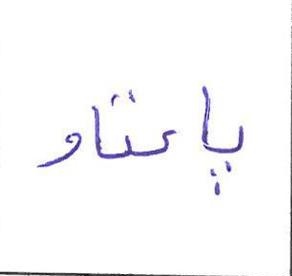 پاستاو